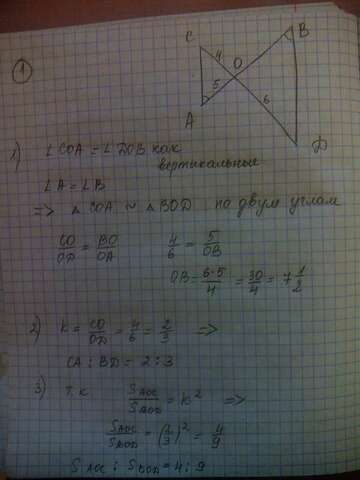 1
C
B
4
O
5
6
A
D
1) ∠COA = ∠DOB как
вертикальные
∠A = ∠B
=> △COA ~ △BOD по двум углам
CO/OD = BO/OA 4/6 = 5/OB
OB = 6·5/4 = 30/4 = 7 1/2
2) k = CO/OD = 4/6 = 2/3 =>
CA : BD = 2 : 3
3) т.к S_AOC/S_BOD = k² =>
S_AOC/S_BOD = (2/3)² = 4/9
S_AOC : S_BOD = 4 : 9